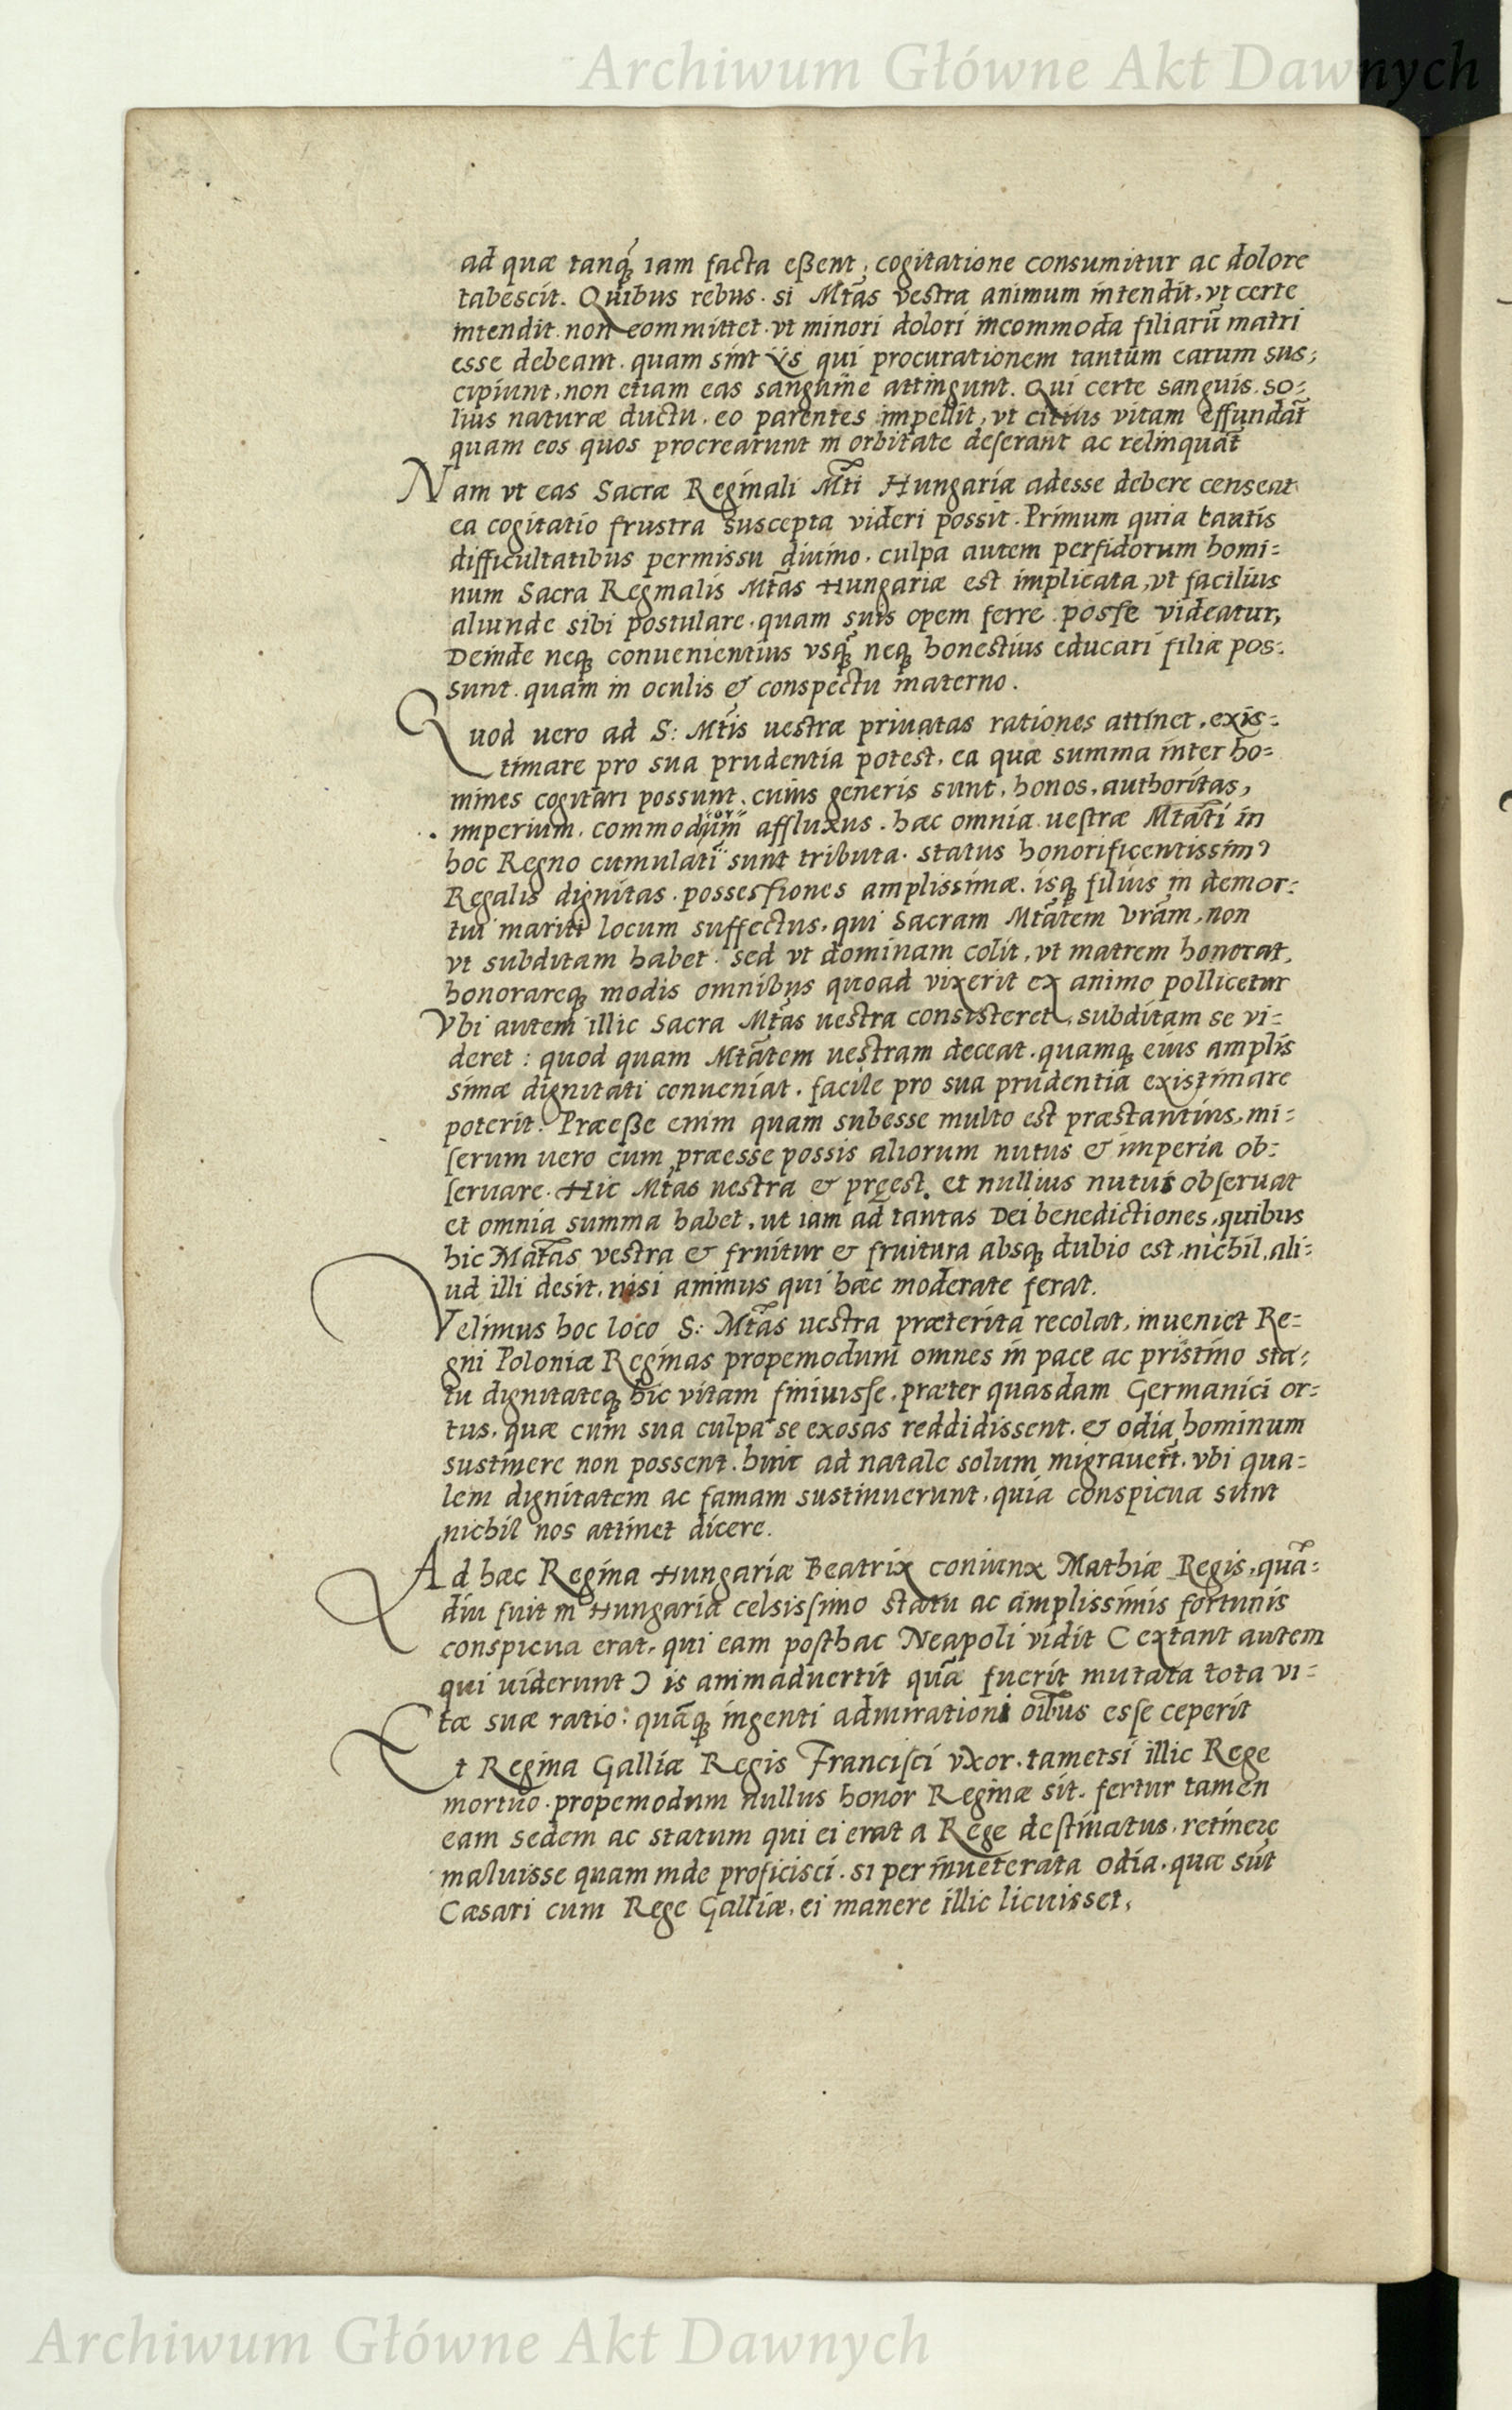 Archiwum Główne Akt Dawnych
ad quæ tanq̃ iam facta eßent, cogitatione consumitur ac dolore
tabescit. Quibus rebus. si Mtãs vestra animum intendit, vt certe
intendit. non committet. vt minori dolori incommoda filiarũ matri
esse debeant. quam sint ijs qui procurationem tantum earum sus;
cipiunt, non etiam eas sanguine attingunt. Qui certe sanguis. so:
lius naturæ ductu. eo parentes impellit, vt citius vitam effundãt
quam eos quos procrearunt in orbitate deserant ac relinquãt
Nam vt eas Sacræ Reginali Mti Hungariæ adesse debere censeat
ea cogitatio frustra suscepta videri possit. Primum quia tantis
difficultatibus permissu diuino. culpa autem perfidorum homi:
num Sacra Reginalis Mtãs Hungariæ est implicata, vt facilius
aliunde sibi postulare. quam suis opem ferre posse videatur,
Deinde neq; conuenientius vsq̃ neq; honestius educari filiæ pos:
sunt. quam in oculis & conspectu materno.
Quod uero ad S: Mtis uestræ priuatas rationes attinet, exis:
timare pro sua prudentia potest, ea quæ summa inter ho:
mines cogitari possunt. cuius generis sunt. honos. authoritas,
imperium. commodium affluxus. hæc omnia uestræ Mtãti in
hoc Regno cumulati sunt tributa. status honorificentissim9
Regalis dignitas. possessiones amplissimæ. isq; filius in demor:
tui mariti locum suffectus. qui Sacram Mtãtem vrãm, non
vt subditam habet. sed vt dominam colit, vt matrem honorat,
honorareq; modis omnibus quoad vixerit ex animo pollicetur
Vbi autem illic Sacra Mtãs uestra consisteret, subditam se vi:
deret: quod quam Mtãtem uestram deceat. quamq; eius amplis
simæ dignitati conueniat. facile pro sua prudentia existimare
poterit. Præeße enim quam subesse multo est præstantius, mi:
serum uero cum præesse possis aliorum nutus & imperia ob:
seruare. Hic Mtãs uestra & pręest. et nullius nutus obseruat
et omnia summa habet. ut iam ad tantas Dei benedictiones, quibus
hic Matãs vestra & fruitur & fruitura absq; dubio est, nichil, ali:
ud illi desit. nisi animus qui hæc moderate ferat.
Velimus hoc loco S: Mtãs uestra præterita recolat, inueniet Re:
gni Poloniæ Reginas propemodum omnes in pace ac pristino sta:
tu dignitateq; hic vitam finiuisse. præter quasdam Germanici or:
tus. quæ cum sua culpa se exosas reddidissent. & odia hominum
sustinere non possent. hinc ad natale solum migrauerũt. vbi qua:
lem dignitatem ac famam sustinuerunt, quia conspicua sunt
nichil nos attinet dicere.
Ad hæc Regina Hungariæ Beatrix coniunx Mathiæ Regis, quã:
diu fuit in Hungaria celsissimo statu ac amplissimis fortunis
conspicua erat, qui eam posthac Neapoli vidit ( extant autem
qui uiderunt ) is animaduertit quã fuerit mutata tota vi:
tæ suæ ratio: quãq; ingenti admirationi oibus esse ceperit
Et Regina Galliæ Regis Francisci vxor. tametsi illic Rege
mortuo. propemodum nullus honor Reginæ sit. fertur tamen
eam sedem ac statum qui ei erat a Rege destinatus. retinere
maluisse quam inde proficisci. si per inueterata odia. quæ sũt
Cæsari cum Rege Galliæ. ei manere illic licuisset,
Archiwum Główne Akt Dawnych